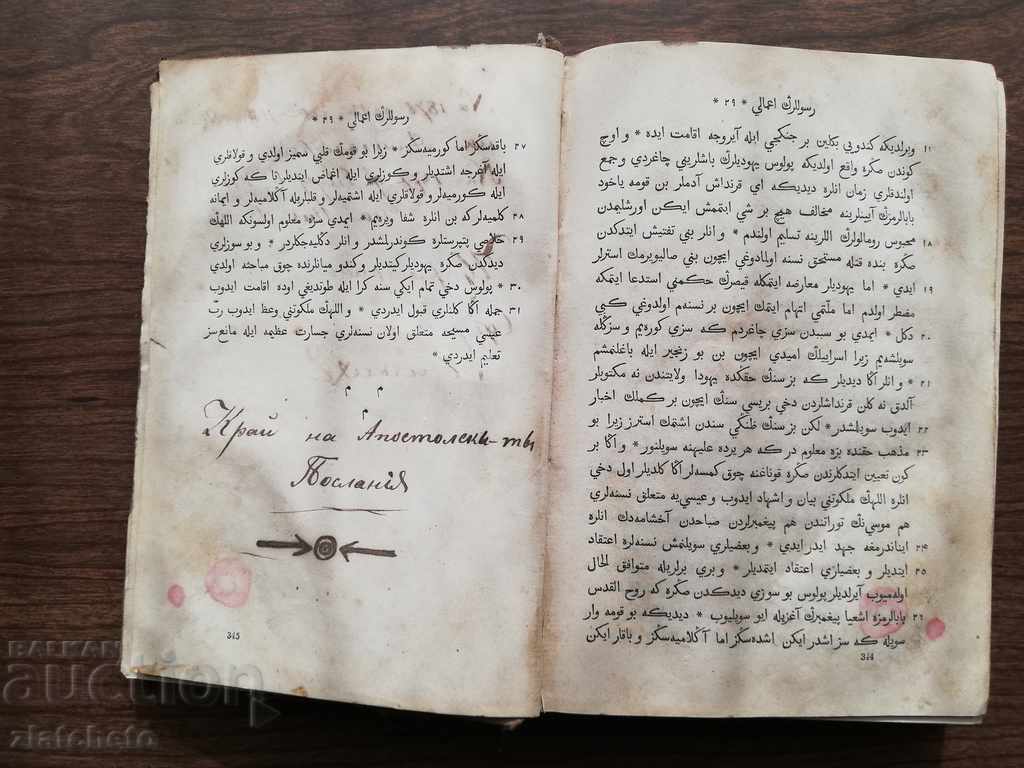 رسوللرڭ اعمالي * ٢٩ *
١٦ ويرلديكه كندويي بكلين بر جنكيي ايله آيروجه اقامت ايده * و اوچ
كوندن صڭره واقع اولديكه پولوس يهوديلرڭ باشلريني چاغردي و جمع
اولندقلري زمان انلره ديديكه اي قرنداش آدملر بن قومه ياخود
بابالرمزڭ آيينلرينه مخالف هيچ بر شي ايتمش ايكن اورشليمدن
١٨ محبوس رومالولرڭ اللرينه تسليم اولندم * و انلر بني تفتيش ايتدكدن
صڭره بنده قتله مستحق نسنه اولمادوغي ايچون بني صاليويرمك استرلر
١٩ ايدي * اما يهوديلر معارضه ايتمكله قيصرڭ حكمني استدعا ايتمكه
مضطر اولدم اما ملّتمي اتهام ايتمك ايچون بر نسنه‌م اولدوغي كبي
٢٠ دكل * ايمدي بو سببدن سزي چاغردم كه سزي كوره‌يم و سزڭله
سويلشه‌يم زيرا اسرايلڭ اميدي ايچون بن بو زنجير ايله باغلنمشم
٢١ * و انلر اڭا ديديلر كه بز سنڭ حقڭده يهودا ولايتندن نه مكتوبلر
آلدق نه كلن قرنداشلردن دخي بريسي سنڭ ايچون بر كملك اخبار
٢٢ ايدوب سويلشدر * لكن بز سنڭ ظنڭي سندن اشتمك استرز زيرا بو
٢٣ مذهب حقنده بزه معلوم در كه هر يرده عليهنه سويلنور * و اڭا بر
كون تعيين ايتدكلرندن صڭره قوناغنه چوق كمسه‌لر اڭا كلديلر اول دخي
انلره اللهڭ ملكوتني بيان و اشهاد ايدوب و عيسي‌يه متعلق نسنه‌لري
هم موسي‌نڭ توراتندن هم پيغمبرلردن صباحدن آخشامه‌دك انلره
٢۴ ايناندرمغه جهد ايدر ايدي * و بعضيلري سويلنمش نسنه‌لره اعتقاد
٢٥ ايتديلر و بعضيلري اعتقاد ايتمديلر * و بري برلريله متوافق الحال
اولميوب آيرلديلر پولوس بو سوزي ديدكدن صڭره كه روح القدس
٢٦ بابالرمزه اشعيا پيغمبرڭ آغزيله ايو سويليوب * ديديكه بو قومه وار
سويله كه سز اشدر ايكن اشده‌سڭز اما آڭلاميه‌سڭز و باقار ايكن
344
رسوللرڭ اعمالي * ٢٩ *
٢٧ باقه‌سڭز اما كورميه‌سڭز * زيرا بو قومڭ قلبي سميز اولدي و قولاقلري
ايله آغرجه اشتديلر و كوزلري ايله اغماض ايتديلر تا كه كوزلري
ايله كورميه‌لر و قولاقلري ايله اشتميه‌لر و قلبلريله آڭلاميه‌لر و ايمانه
٢٨ كلميه‌لر كه بن انلره شفا ويره‌يم * ايمدي سزه معلوم اولسونكه اللهڭ
٢٩ خلاصي بتپرستلره كوندرلمشدر و انلر دڭليه‌جكلردر * و بو سوزلري
ديدكدن صڭره يهوديلر كيتديلر و كندو ميانلرنده چوق مباحثه اولدي
٣٠ * پولوس دخي تمام ايكي سنه كرا ايله طوتديغي اوده اقامت ايدوب
٣١ جمله اڭا كلنلري قبول ايدردي * و اللهڭ ملكوتني وعظ ايدوب ربّ
عيسي مسيحه متعلق اولان نسنه‌لري جسارت عظيمه ايله مانع‌سز
تعليم ايدردي *
م م
م
Край на Апостолски-ты
Посланія
345
BALKAN
auction
zlatcheto